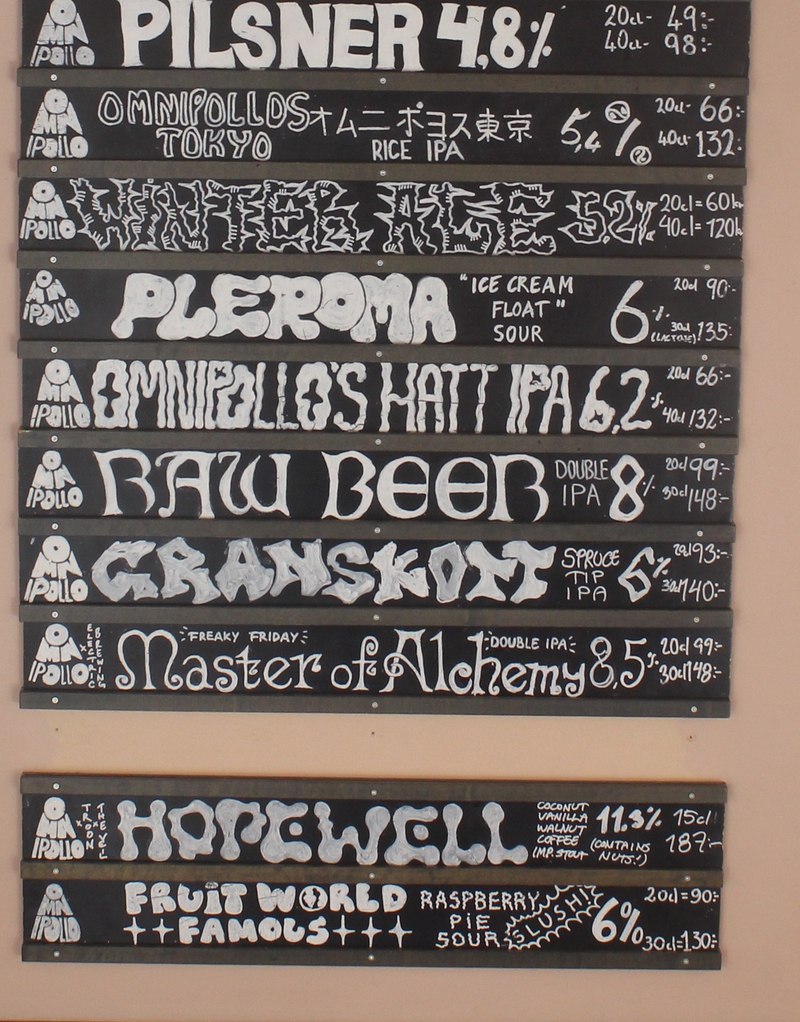 OMNIPOLLO PILSNER 4,8% 20cl- 49:-
40cl- 98:-
OMNIPOLLO OMNIPOLLOS TOKYO オムニポヨス東京 RICE IPA 5,4% 20cl- 66:-
40cl- 132:-
OMNIPOLLO WINTER ALE 5,2% 20cl=60kr
40cl=120kr
OMNIPOLLO PLEROMA "ICE CREAM FLOAT" SOUR 6% (LACTOSE) 20cl 90:-
30cl 135:-
OMNIPOLLO OMNIPOLLO'S HATT IPA 6,2% 20cl 66:-
40cl 132:-
OMNIPOLLO RAW BEER DOUBLE IPA 8% 20cl 99:-
30cl 148:-
OMNIPOLLO GRANSKOTT SPRUCE TIP IPA 6% 20cl 93:-
30cl 140:-
OMNIPOLLO x ELECTRIC BREWING FREAKY FRIDAY Master of Alchemy DOUBLE IPA 8,5% 20cl 99:-
30cl 148:-
OMNIPOLLO x TROON x THE VEIL HOPEWELL COCONUT VANILLA WALNUT COFFEE IMP. STOUT 11.3% (CONTAINS NUTS!) 15cl
187:-
OMNIPOLLO FRUIT WORLD FAMOUS RASPBERRY PIE SOUR SLUSH! 6% 20cl=90:-
30cl=130:-